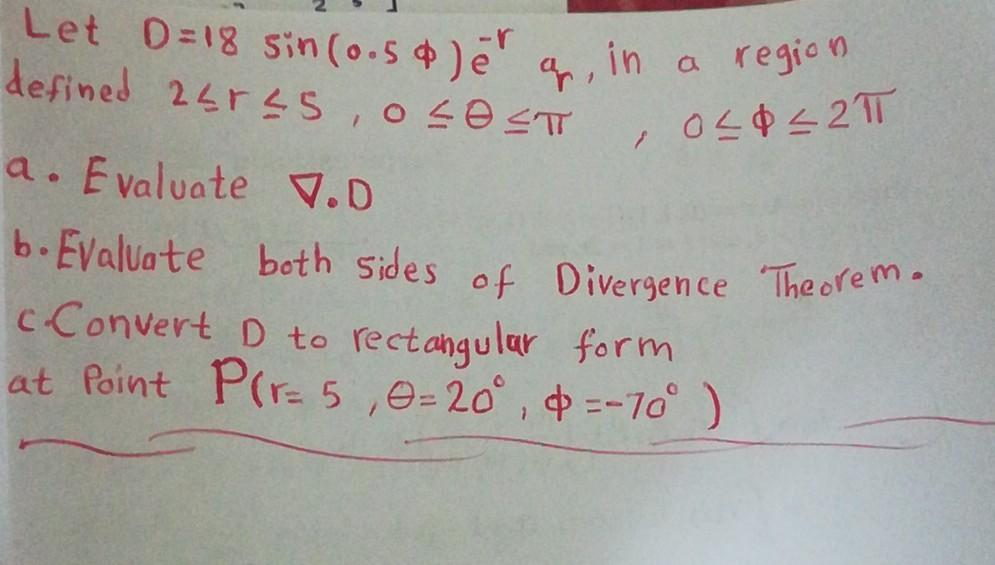 Let D=18 sin(0.5 φ) e^-r a_r, in a region
defined 2≤r≤5 , 0≤θ≤π , 0≤φ≤2π
a. Evaluate ∇.D
b. Evaluate both sides of Divergence Theorem.
c. Convert D to rectangular form
at Point P(r= 5 , θ=20°, φ=-70° )